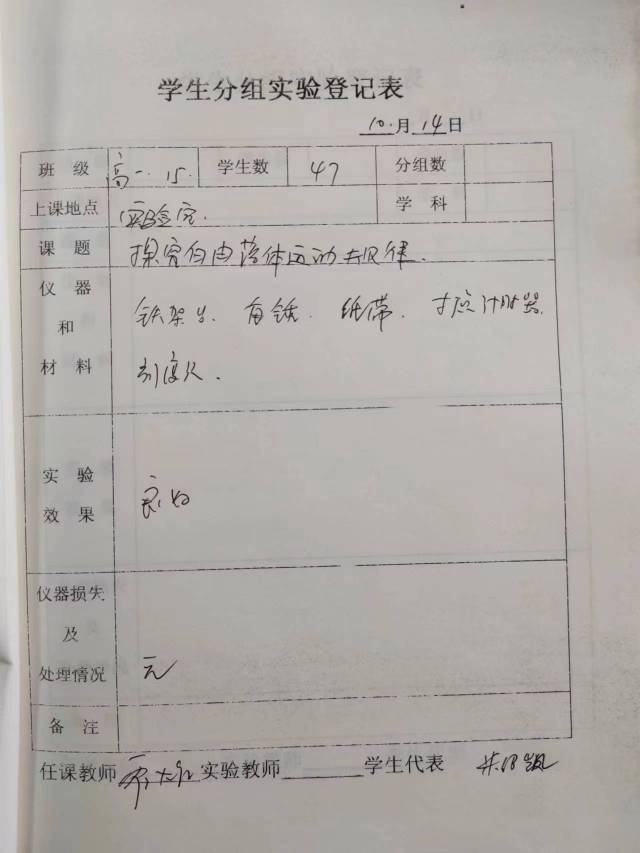 学生分组实验登记表
10.月14日
班 级 高一.15 学生数 47 分组数
上课地点 实验室. 学 科
课 题 探究自由落体运动规律.
仪 器 和 材 料 铁架台. 重锤. 纸带. 打点计时器.
刻度尺.
实 验 效 果 良好
仪器损失 及 处理情况 无
备 注
任课教师 实验教师 学生代表